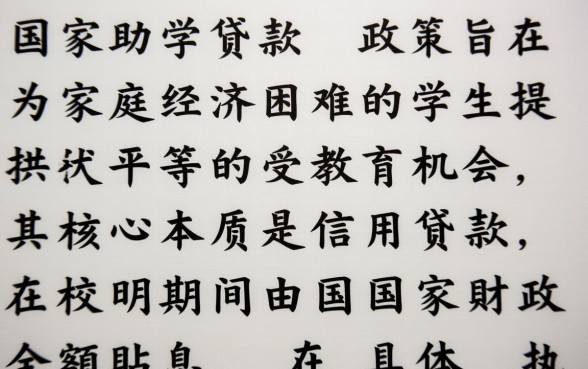 国家助学贷款 政策旨在
为家庭经济困难的学生提
拱状平等的受教育机会，
其核心本质是信用贷款，
在校明期间由国国家财政
全额贴息 在 具体 执